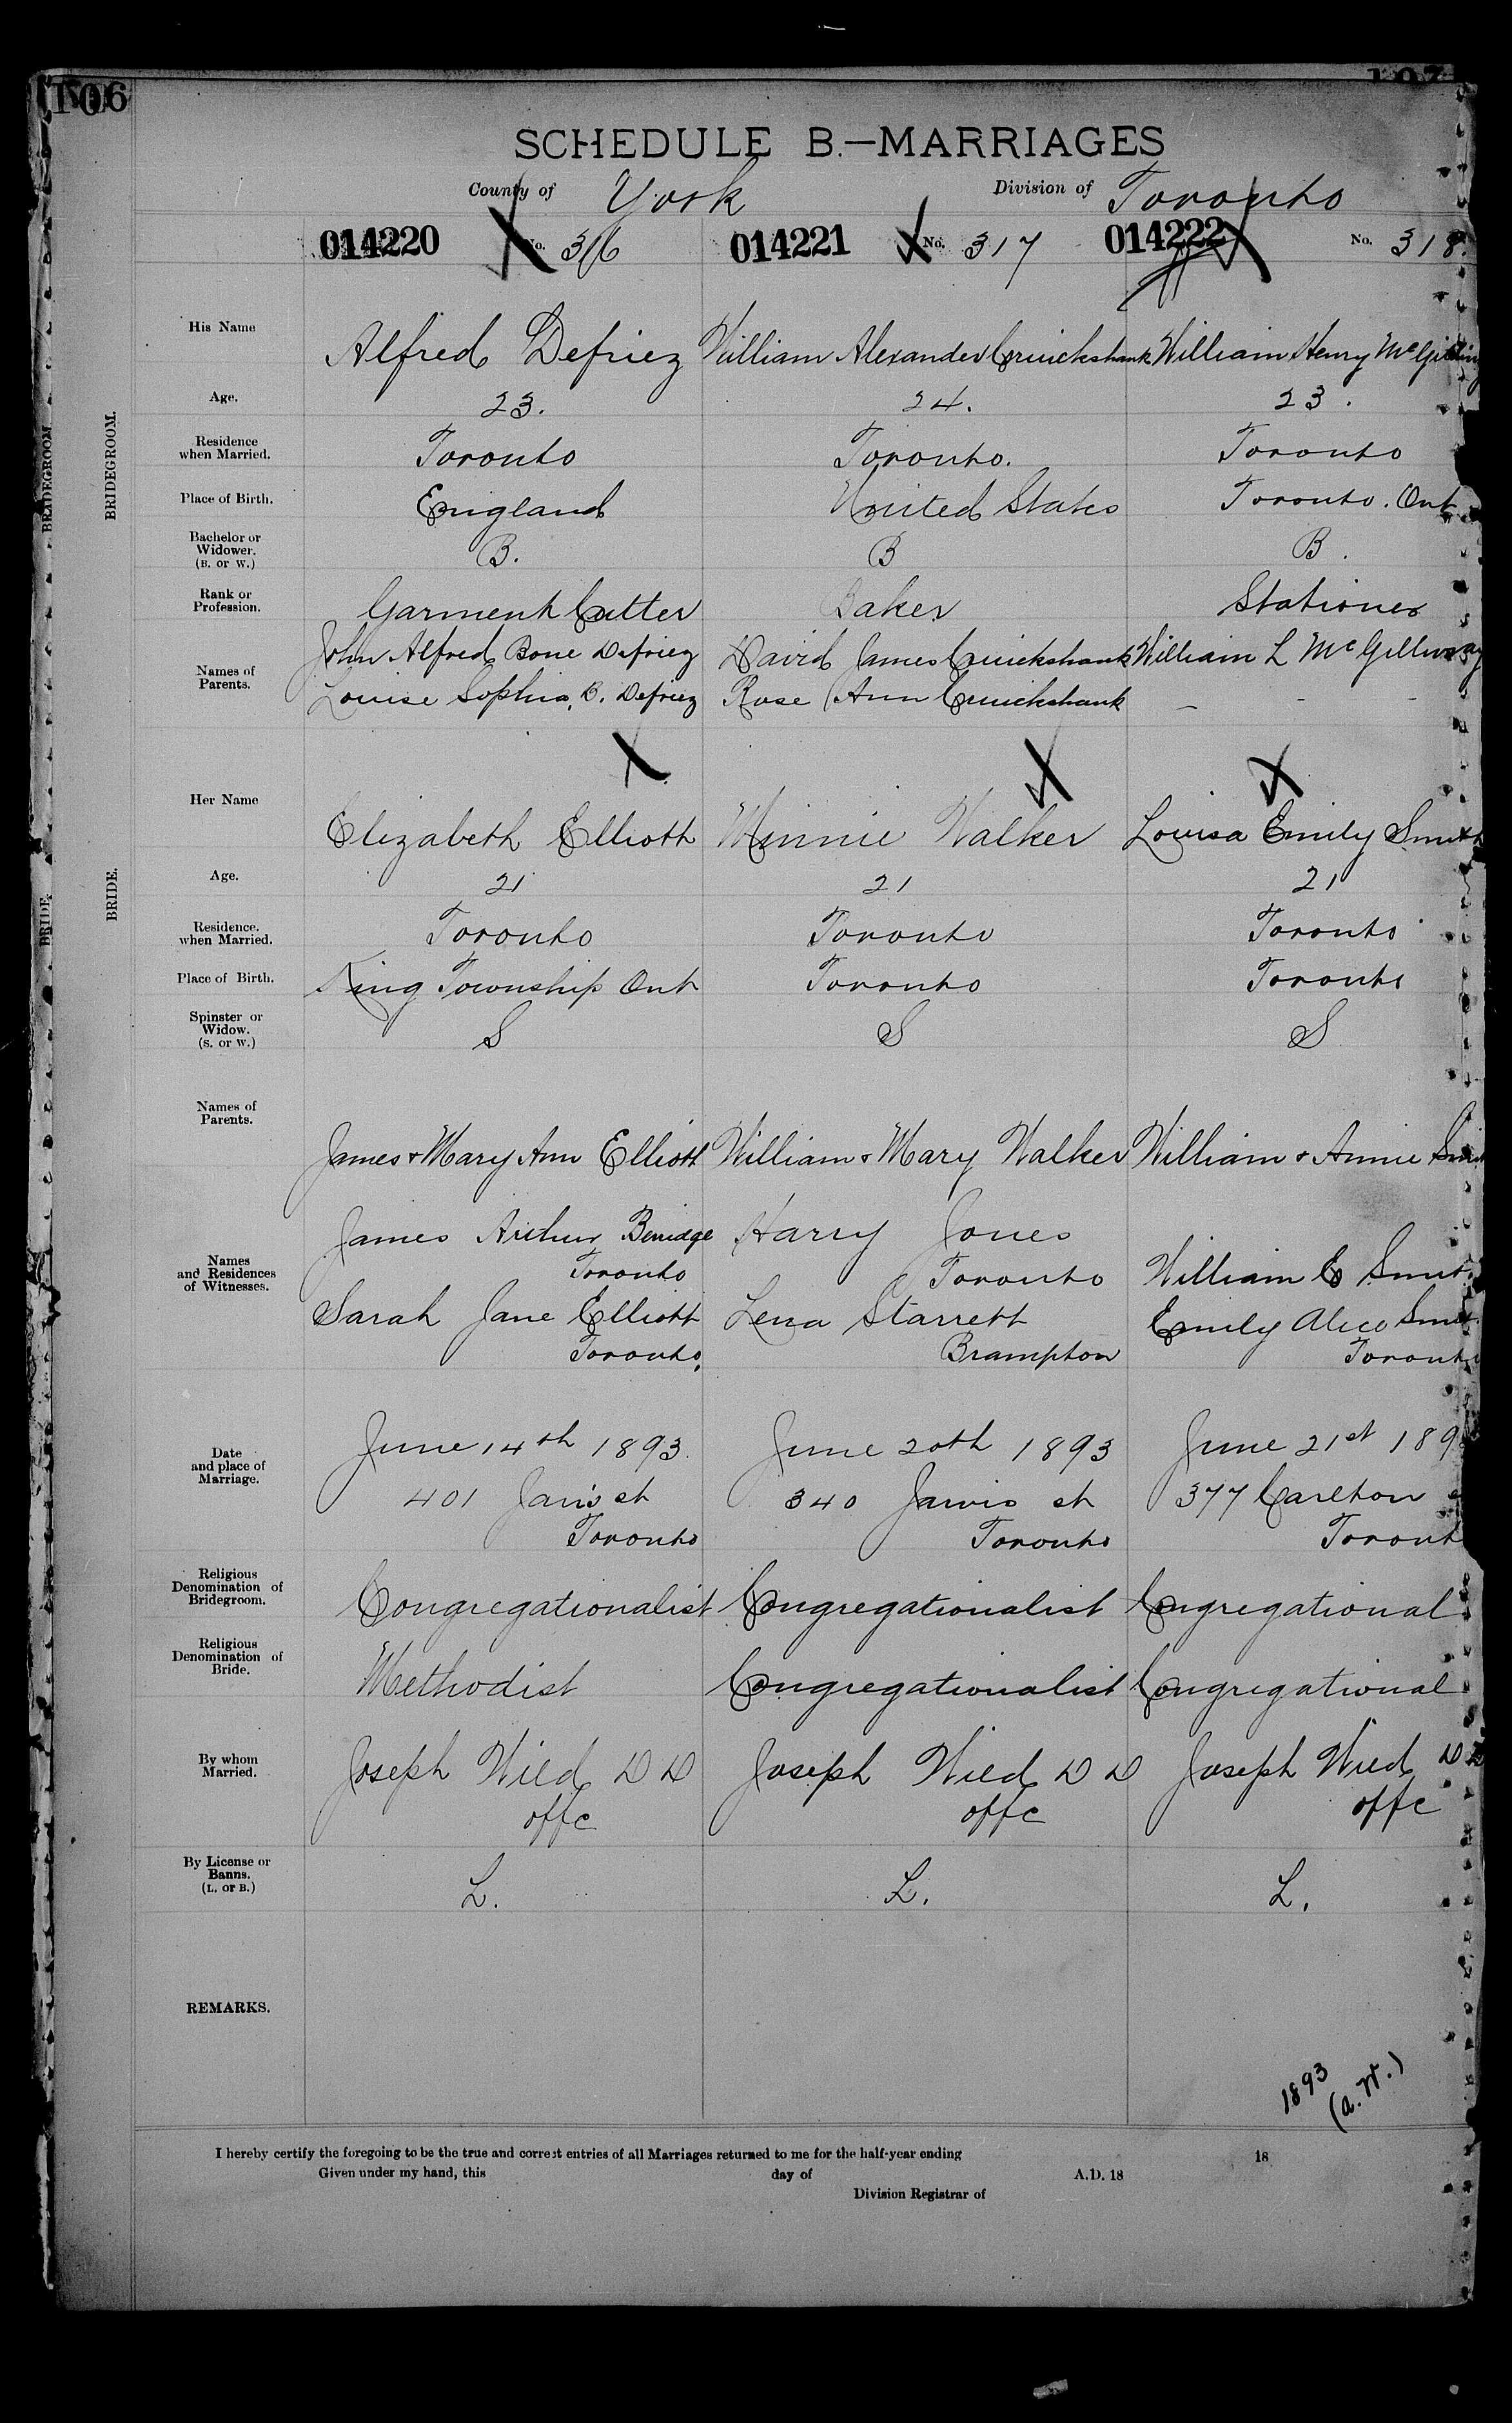 106
SCHEDULE B.—MARRIAGES
County of York Division of Toronto
014220 No. 316 014221 No. 317 014222 No. 318.
His Name Alfred Defriez William Alexander Cruickshank William Henry
Age. 23. 24. 23.
Residence when Married. Toronto Toronto. Toronto
Place of Birth. England United States Toronto. Ont
Bachelor or Widower. (B. or W.) B. B B.
Rank or Profession. Garment Cutter Baker Stationer
Names of Parents. John Alfred Bone Defriez David James Cruickshank William L McGillivray
Louise Sophia, B. Defriez Rose Ann Cruickshank — — —
BRIDEGROOM.
BRIDEGROOM
Her Name Elizabeth Elliott Minnie Walker Louisa Emily Smith
Age. 21 21 21
Residence. when Married. Toronto Toronto Toronto
Place of Birth. King Township Ont Toronto Toronto
Spinster or Widow. (S. or W.) S S S
Names of Parents. James & Mary Ann Elliott William & Mary Walker William & Annie
BRIDE.
BRIDE.
Names and Residences of Witnesses. James Arthur Berridge Harry Jones William E
Toronto Toronto
Sarah Jane Elliott Lena Starrett Emily Alice
Toronto, Brampton Toronto
Date and place of Marriage. June 14th 1893. June 20th 1893 June 21st 189
401 Jarvis st 340 Jarvis st 377 Carlton
Toronto Toronto Toront
Religious Denomination of Bridegroom. Congregationalist Congregationalist Congregational
Religious Denomination of Bride. Methodist Congregationalist Congregational
By whom Married. Joseph Wild D D Joseph Wild D D Joseph Wild D D
offc offc offc
By License or Banns. (L. or B.) L. L. L.
REMARKS.
1893
(a.W.)
I hereby certify the foregoing to be the true and correct entries of all Marriages returned to me for the half-year ending 18
Given under my hand, this day of A.D. 18
Division Registrar of